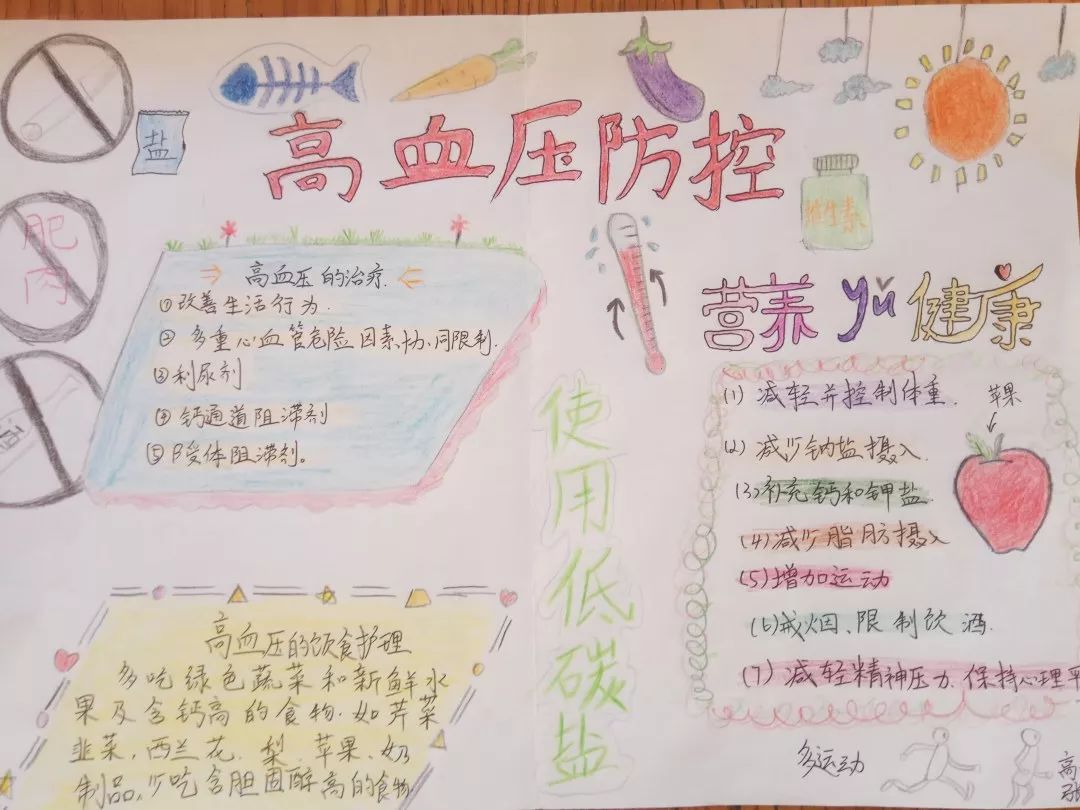 盐
高血压防控
肥
肉
维生素
高血压的治疗.
①改善生活行为.
② 多重心血管危险因素协同限制.
③利尿剂
④钙通道阻滞剂
⑤β受体阻滞剂。
营养 yǔ 健康
使用低碳盐
(1) 减轻并控制体重.
苹果
(2) 减少钠盐摄入.
(3)补充钙和钾盐.
(4)减少脂肪摄入
(5)增加运动
(6)戒烟、限制饮酒.
(7)减轻精神压力.保持心理平
高血压的饮食护理
多吃绿色蔬菜和新鲜水
果及含钙高的食物.如芹菜
韭菜,西兰花.梨.苹果、奶
制品,少吃含胆固醇高的食物.
多运动
高